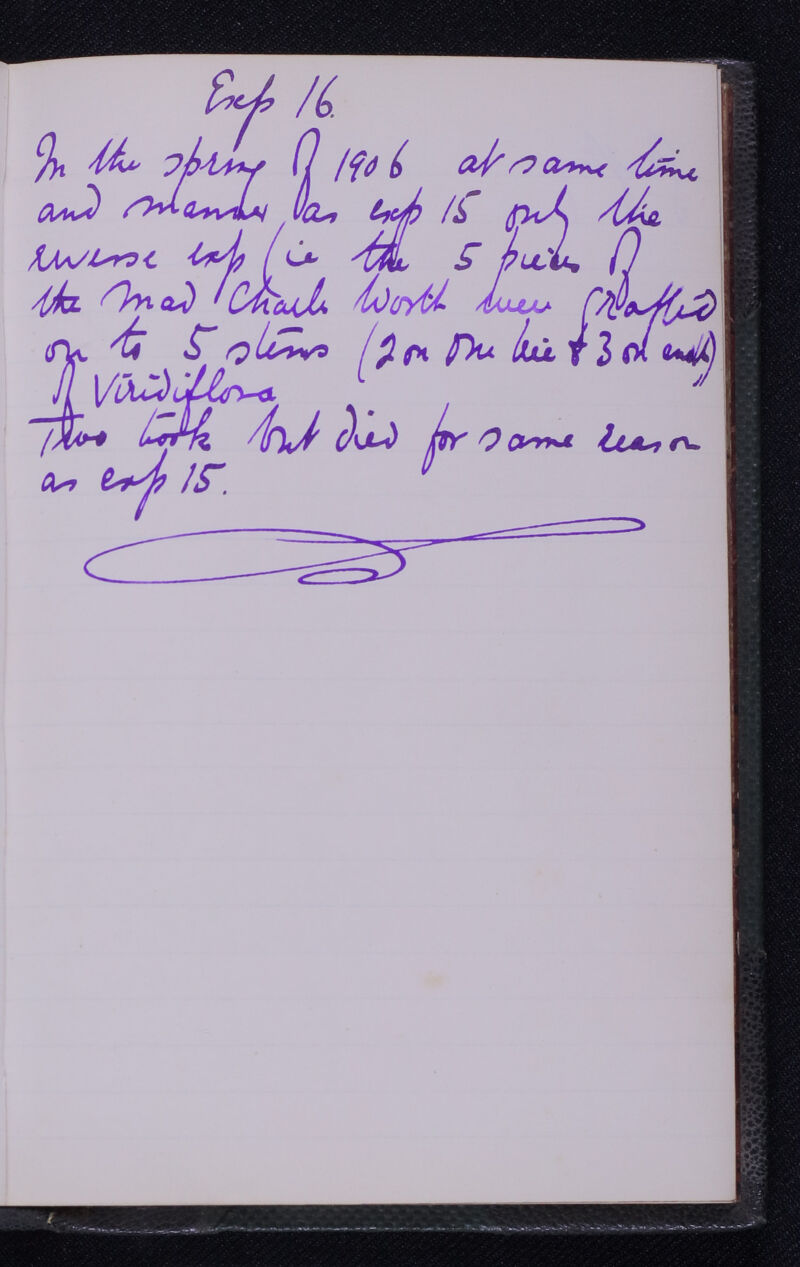 Exp 16.
In the spring of 1906 at same time
and manner as exp 15 only the
reverse exp (ie the 5 pieces of
the Mad Charles Worth were grafted
on to 5 stems (2 on one tree & 3 on
of Viridiflora
Two took but died for same reason
as exp 15.